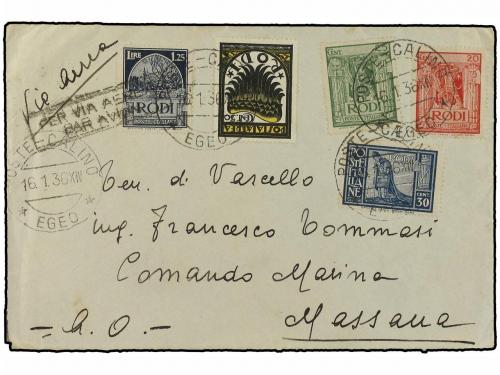 Via aerea
PER VIA AEREA
PAR AVION
LIRE 1.25
RODI
RODI
POSTA AEREA
CENT
RODI
20
RODI
POSTE ITALIANE
CENT 30
POSTE-CALINO
16.1.36 XIV
EGEO
Ten. di Vascello
ing. Francesco Tommasi
Comando Marina
- A.O. -
Massaua